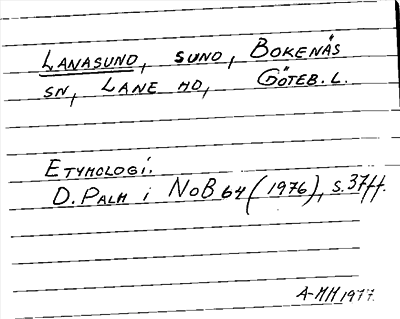 LANASUND, SUND, BOKENÄS
SN, LANE HD, GÖTEB. L.
ETYMOLOGI.
D. PALM i NoB 64 (1976), s. 37ff.
A-MM 1977.